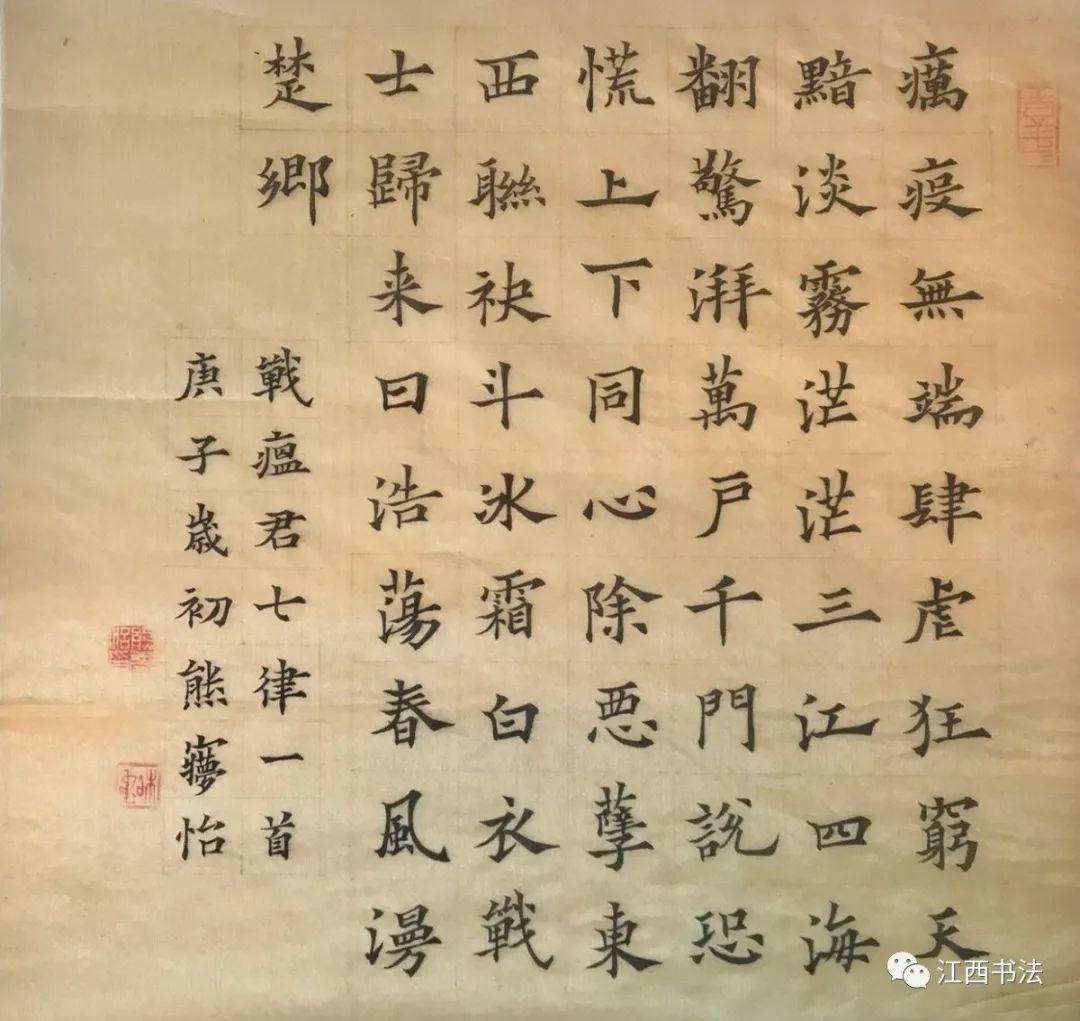 癘疫無端肆虐狂窮天
黯淡霧茫茫三江四海
翻驚湃萬戶千門說恐
慌上下同心除惡孽東
西聯袂斗冰霜白衣戰
士歸来日浩蕩春風漫
楚鄉
戰瘟君七律一首
庚子歲初熊寱怡
江西书法